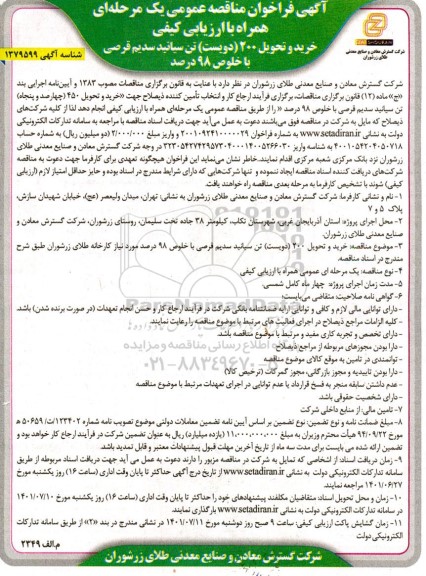 آگهی فراخوان مناقصه عمومی یک مرحله‌ای
همراه با ارزیابی کیفی
خرید و تحویل ۲۰۰ (دویست) تن سیانید سدیم قرصی
با خلوص ۹۸ درصد
شرکت گسترش معادن و صنایع معدنی
طلای زرشوران
شناسه آگهی ۱۳۷۹۵۹۹
شرکت گسترش معادن و صنایع معدنی طلای زرشوران در نظر دارد با عنایت به قانون برگزاری مناقصات مصوب ۱۳۸۳ و آیین‌نامه اجرایی بند
«ج» ماده (۱۲) قانون برگزاری مناقصات، برگزاری فرآیند ارجاع کار و انتخاب تأمین کننده ذیصلاح جهت «خرید و تحویل
تن سیانید سدیم قرصی با خلوص ۹۸ درصد » را از طریق مناقصه عمومی یک مرحله‌ای همراه با ارزیابی کیفی انجام دهد لذا از کلیه شرکت‌های
ذیصلاح که مایل به شرکت در مناقصه فوق می‌باشند دعوت به عمل می‌آید جهت دریافت اسناد مناقصه با مراجعه به سامانه تدارکات الکترونیکی
دولت به نشانی www.setadiran.ir به شماره فراخوان و واریز مبلغ ۲/۰۰۰/۰۰۰ (دو میلیون ریال) به شماره حساب
به شناسه واریز در وجه شرکت گسترش معادن و صنایع معدنی طلای
زرشوران نزد بانک مرکزی شعبه مرکزی اقدام نمایند. خاطر نشان می‌نماید این فراخوان هیچگونه تعهدی برای کارفرما جهت دعوت به مناقصه
شرکت‌های دریافت کننده اسناد مناقصه ایجاد ننموده و تنها شرکت‌هایی که دارای شرایط مندرج در اسناد بوده و حایز حداقل امتیاز لازم (ارزیابی
کیفی) شوند با تشخیص کارفرما به مرحله بعدی مناقصه راه خواهند یافت.
۱- نام و نشانی کارفرما: شرکت گسترش معادن و صنایع معدنی طلای زرشوران به نشانی: تهران، میدان ولیعصر (عج)، خیابان شهیدان سازش،
پلاک ۵ و ۷
۲- محل اجرای پروژه: استان آذربایجان غربی، شهرستان تکاب، کیلومتر ۳۸ جاده تخت سلیمان، روستای زرشوران، شرکت گسترش معادن و
صنایع معدنی طلای زرشوران.
۳- موضوع مناقصه: خرید و تحویل ۲۰۰ (دویست) تن سیانید سدیم قرصی با خلوص ۹۸ درصد مورد نیاز کارخانه طلای زرشوران طبق شرح
مندرج در اسناد مناقصه.
۴- نوع مناقصه: یک مرحله ای عمومی همراه با ارزیابی کیفی
۵- مدت زمان اجرای پروژه: چهار ماه کامل شمسی.
۶- گواهی نامه صلاحیت متقاضی می‌بایست:
- دارای توانایی مالی لازم و کافی و توانایی ارایه ضمانتنامه بانکی شرکت در فرآیند ارجاع کار و حسن انجام تعهدات (در صورت برنده شدن) باشد.
- کلیه الزامات مراجع ذیصلاح در اجرای فعالیت های مرتبط با موضوع مناقصه را رعایت نمایند.
- دارای تخصص و تجربه کاری مفید و مرتبط با موضوع باشد.
- دارا بودن مجوزهای مربوطه از مراجع ذیصلاح
- توانمندی در تامین به موقع کالای موضوع مناقصه
- دارا بودن تاییدیه و مجوز بازرگانی، مجوز گمرکات (ترخیص کالا)
- عدم داشتن سابقه منجر به فسخ قرارداد یا عدم توانایی در اجرای تعهدات مرتبط با موضوع مناقصه
- دارای شخصیت حقوقی باشد.
۷- تامین مالی: از منابع داخلی شرکت
۸- مبلغ ضمانت نامه و نوع تضمین: نوع تضمین بر اساس آیین نامه تضمین معاملات دولتی موضوع تصویب نامه شماره ۱۲۳۴۰۲/ت۵۰۶۵۹ ه
مورخ ۹۴/۰۹/۲۲ هیأت محترم وزیران به مبلغ ۱۱,۰۰۰,۰۰۰,۰۰۰ (یازده میلیارد) ریال به عنوان تضمین شرکت در فرآیند ارجاع کار خواهد بود و
تضمین ارائه شده می بایست برای مدت سه ماه از تاریخ آخرین مهلت قبول پیشنهادات معتبر و قابل تمدید باشد.
۹- زمان دریافت اسناد: از اشخاصی که تمایل به شرکت در مناقصه مزبور را دارند دعوت به عمل می آید جهت دریافت اسناد مربوطه از طریق
سامانه تدارکات الکترونیکی دولت به نشانی www.setadiran.ir از تاریخ درج آگهی حداکثر تا پایان وقت اداری (ساعت ۱۶) روز یکشنبه مورخ
۱۴۰۱/۰۶/۲۷ مراجعه نمایند.
۱۰- زمان و محل تحویل اسناد: متقاضیان مکلفند پیشنهادهای خود را حداکثر تا پایان وقت اداری (ساعت ۱۶) روز یکشنبه مورخ ۱۴۰۱/۰۷/۱۰
در سامانه تدارکات الکترونیکی دولت به نشانی www.setadiran.ir بارگذاری نمایند.
۱۱- زمان گشایش پاکت ارزیابی کیفی: ساعت ۹ صبح روز دوشنبه مورخ ۱۴۰۱/۰۷/۱۱ در نشانی مندرج در بند «۲» از طریق سامانه تدارکات
الکترونیکی دولت
م.الف ۲۳۴۹
شرکت گسترش معادن و صنایع معدنی طلای زرشوران